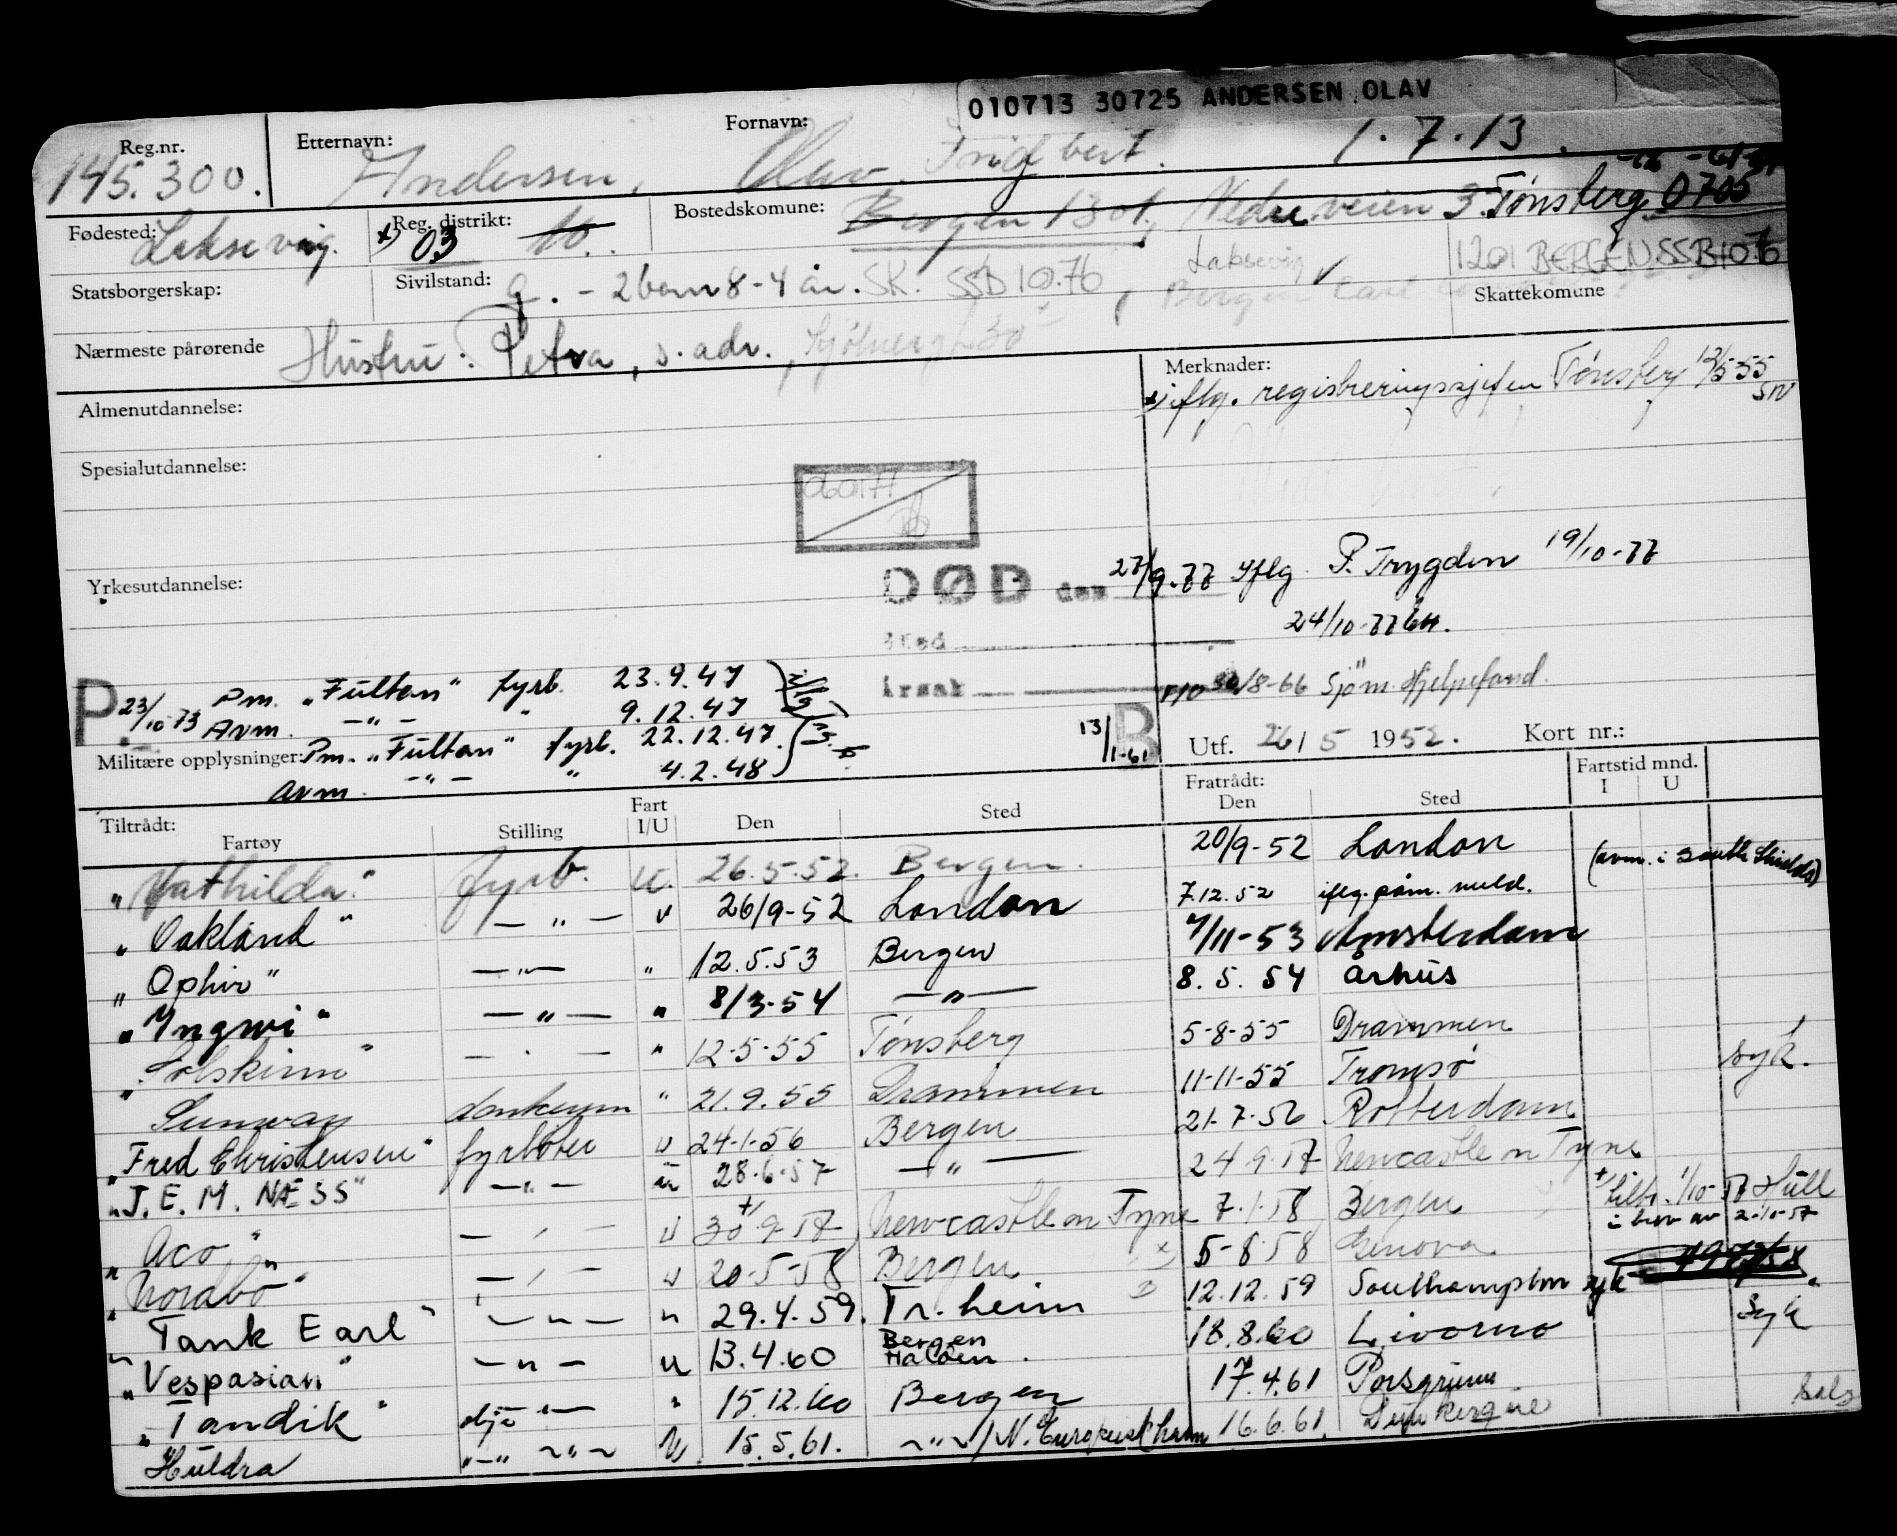 010713 30725 ANDERSEN OLAV
Reg.nr. Etternavn: Fornavn:
145.300. Andersen, Olav Fridbert. 1.7.13.
Fødested: Laksevåg. Reg. distrikt: x) 03 10. Bostedskomune: Bergen 1301, Nedre veien 3. Tønsberg 0705
Laksevåg 1201 BERGEN SSB 10.76
Statsborgerskap: Sivilstand: g. - 2 barn 8-4 år. SK. SSB 10.76 Bergen Skattekomune
Nærmeste pårørende Hustru: Petra, s. adr.
Merknader:
x) iflg. registreringssjefen Tønsberg 12/5-55
SN
Almenutdannelse:
Spesialutdannelse:
060177
Yrkesutdannelse:
DØD den 27/9-77 Iflg. P. Trygden 19/10-77
Sted 24/10-77
Årsak 30/8-66 Sjøm. Hjelpefond.
P. 23/10-73 Pm. "Fultan" fyrb. 23.9.47 iflg.
Avm. -"- " 9.12.47
Militære opplysninger: Pm. "Fultan" fyrb. 22.12.47
Avm. -"- " 4.2.48
13/1-61 B Utf. 26/5 1952. Kort nr.:
Tiltrådt: Fratrådt: Fartstid mnd.
Fartøy Stilling Fart I/U Den Sted Den Sted I U
"Mathilda" fyrb. u. 26.5.52. Bergen. 20/9-52 London (avm. i South Shields)
"Oakland" -"- u 26/9-52 London 7.12.52 iflg. påm. meld.
"Ophir" -"- " 12.5.53 Bergen 7/11-53 Amsterdam
"Yngwi" -"- " 8/3-54 -"- 8.5.54 Århus
"Solskinn" -"- " 12-5-55 Tønsberg 5-8-55 Drammen
Sunway donkeym " 21.9.55 Drammen 11-11-55 Tromsø syk.
"Fred Christensen" fyrbøter u 24-1-56 Bergen 21-7-56 Rotterdam
"J.E.M. NÆSS" -"- u 28-6-57 -"- 24-9-57 Newcastle on Tyne
"Aco" -"- u 30+/9-57 Newcastle on Tyne 7-1-58 Bergen + tiltr. 1/10-57 Hull
i brev av 2-10-57
"Nordbo" -"- u 20-5-58 Bergen 5-8-58 Genova
"Tank Earl" -"- u 29.4.59. Tr.heim 12.12.59 Southampton syk
"Vespasian" -"- u 13.4.60 Bergen Halden. 18.8.60 Livorno Syk
"Tandik" -"- " 15.12.60 Bergen 17.4.61 Porsgrunn
Huldra -"- -"- u 15.5.61. -"-/N. Europeisk havn 16.6.61. Dunkerque salg